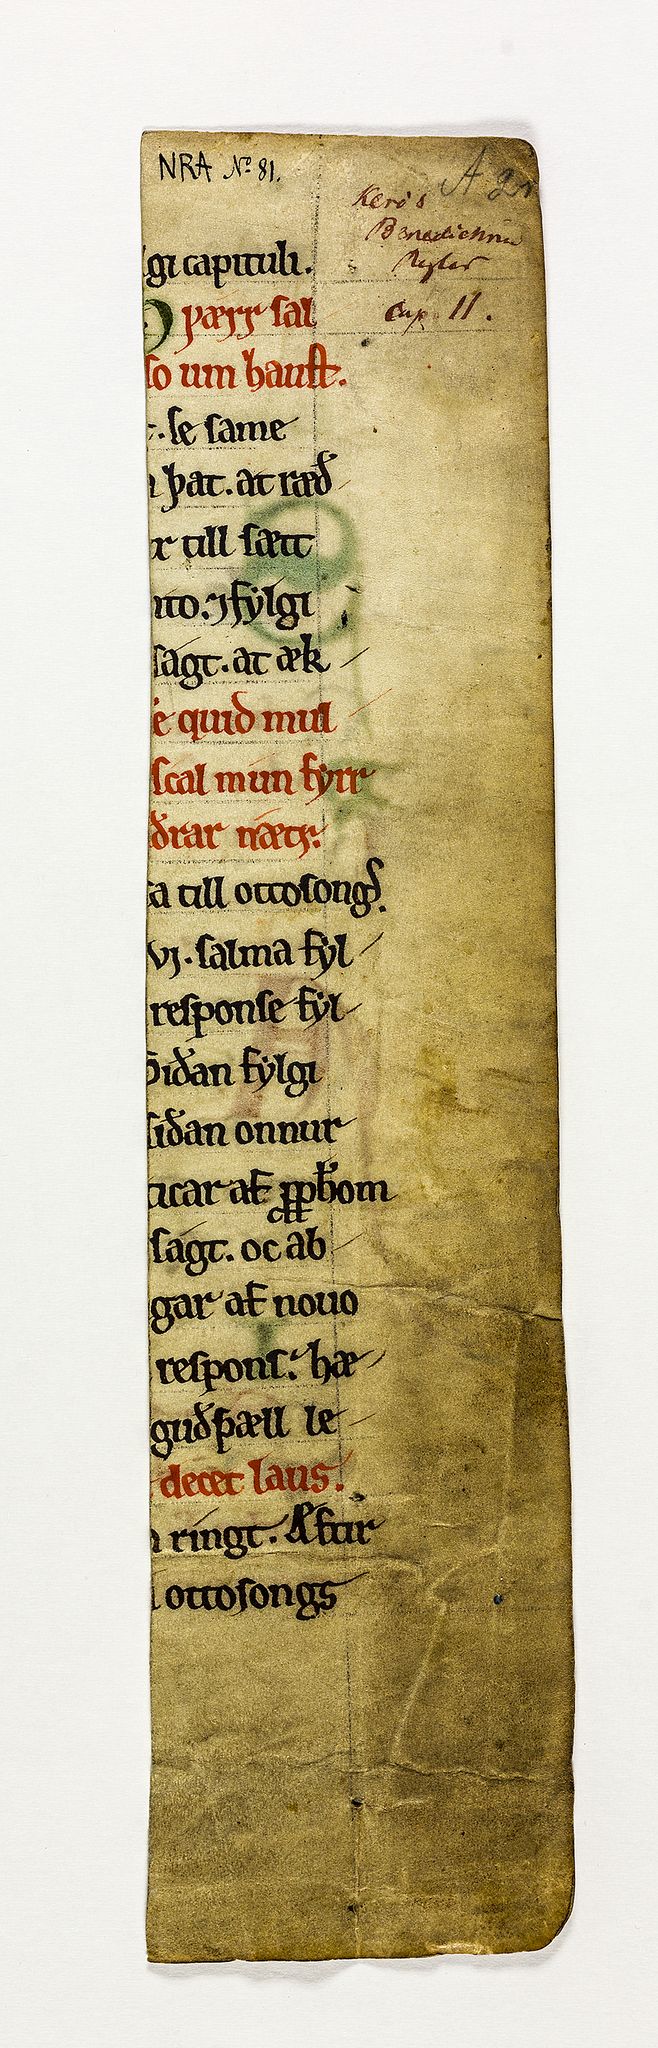 NRA No 81.
A 21
Benedictine
Regler
Cap. 11.
gi capituli.
þærr sal
so um haust.
se same
þat. at ræð
r till sætt
nto. ⁊ fylgi
sagt. at æk
e quid mul
scal mun fyrr
ðrar nætr:
sa till ottosongs.
vj. salma fyl
response fyl
Siðan fylgi
siðan onnur
ticar af ꝓph̄om
sagt. oc ab
gar af nouo
respons̄. hæ
guðspæll le
decet laus.
ringt. Æftir
ottosongs